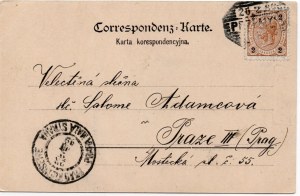 Correspondenz-Karte.
Karta korespondencyjna.
Velectěná slečna
Salome Adamcová
Praze III (Prag)
Mostecká 55.
2 2